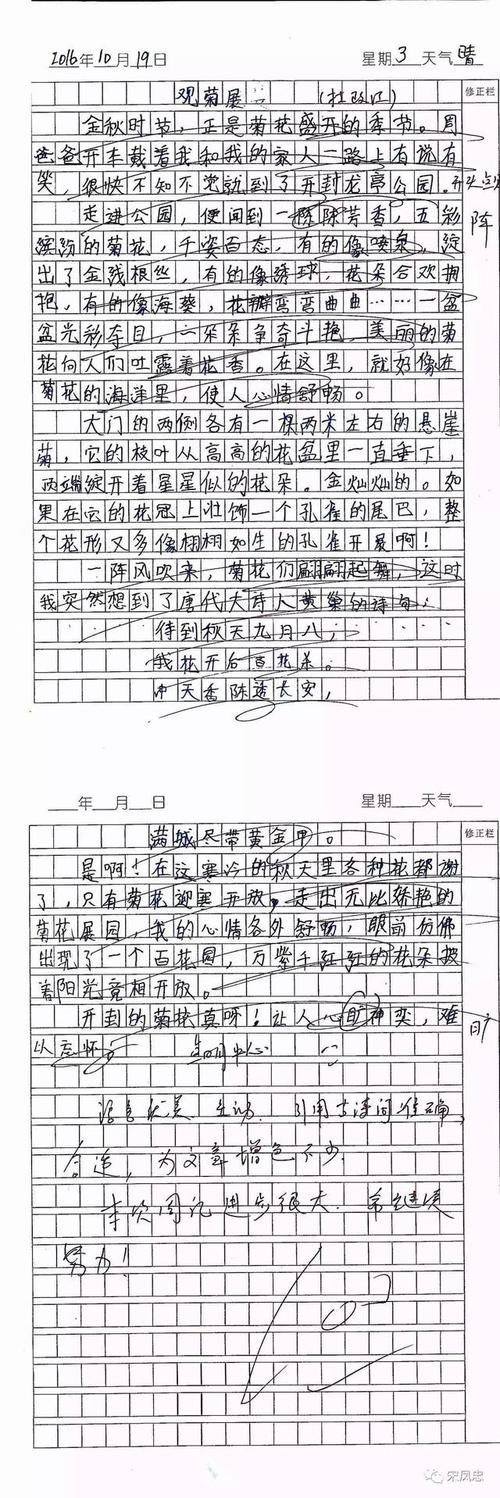 2016年10月19日 星期3天气晴
修正栏
观菊展 (杜政江)
金秋时节,正是菊花盛开的季节。周
爸爸开车载着我和我的家人一路上有说有
笑,很快不知不觉就到了开封龙亭公园。开头点
走进公园,便闻到一陈陈芳香,五彩 阵
缤纷的菊花,千姿百态,有的像喷泉,绽
出了金线根丝,有的像绣球,花朵合欢拥
抱,有的像海葵,花瓣弯弯曲曲……一盆
盆光彩夺目,一朵朵争奇斗艳,美丽的菊
花向人们吐露着花香。在这里,就好像在
菊花的海洋里,使人心情舒畅。
大门的两侧各有一棵两米左右的悬崖
菊,它的枝叶从高高的花盆里一直垂下,
两端绽开着星星似的花朵。金灿灿的。如
果在它的花冠上壮饰一个孔雀的尾巴,整
个花形又多像栩栩如生的孔雀开展啊!
一阵风吹来,菊花们翩翩起舞,这时
我突然想到了唐代大诗人黄巢的诗句:
待到秋天九月八,
我花开后百花杀。
冲天香陈透长安,
年 月 日 星期 天气
修正栏
满城尽带黄金甲。
是啊!在这寒冷的秋天里各种花都谢
了,只有菊花迎寒开放,走出无比娇艳的
菊花展园,我的心情各外舒畅,眼前仿佛
出现了一个百花园,万紫千红红的花朵披
着阳光竞相开放。
开封的菊花真呀!让人心旷神奕,难 旷
以忘怀。 中心
语言优美 生动 引用古诗词准确,
合适,为文章增色不少.
本次周记进步很大. 希继续
努力!
宋凤忠